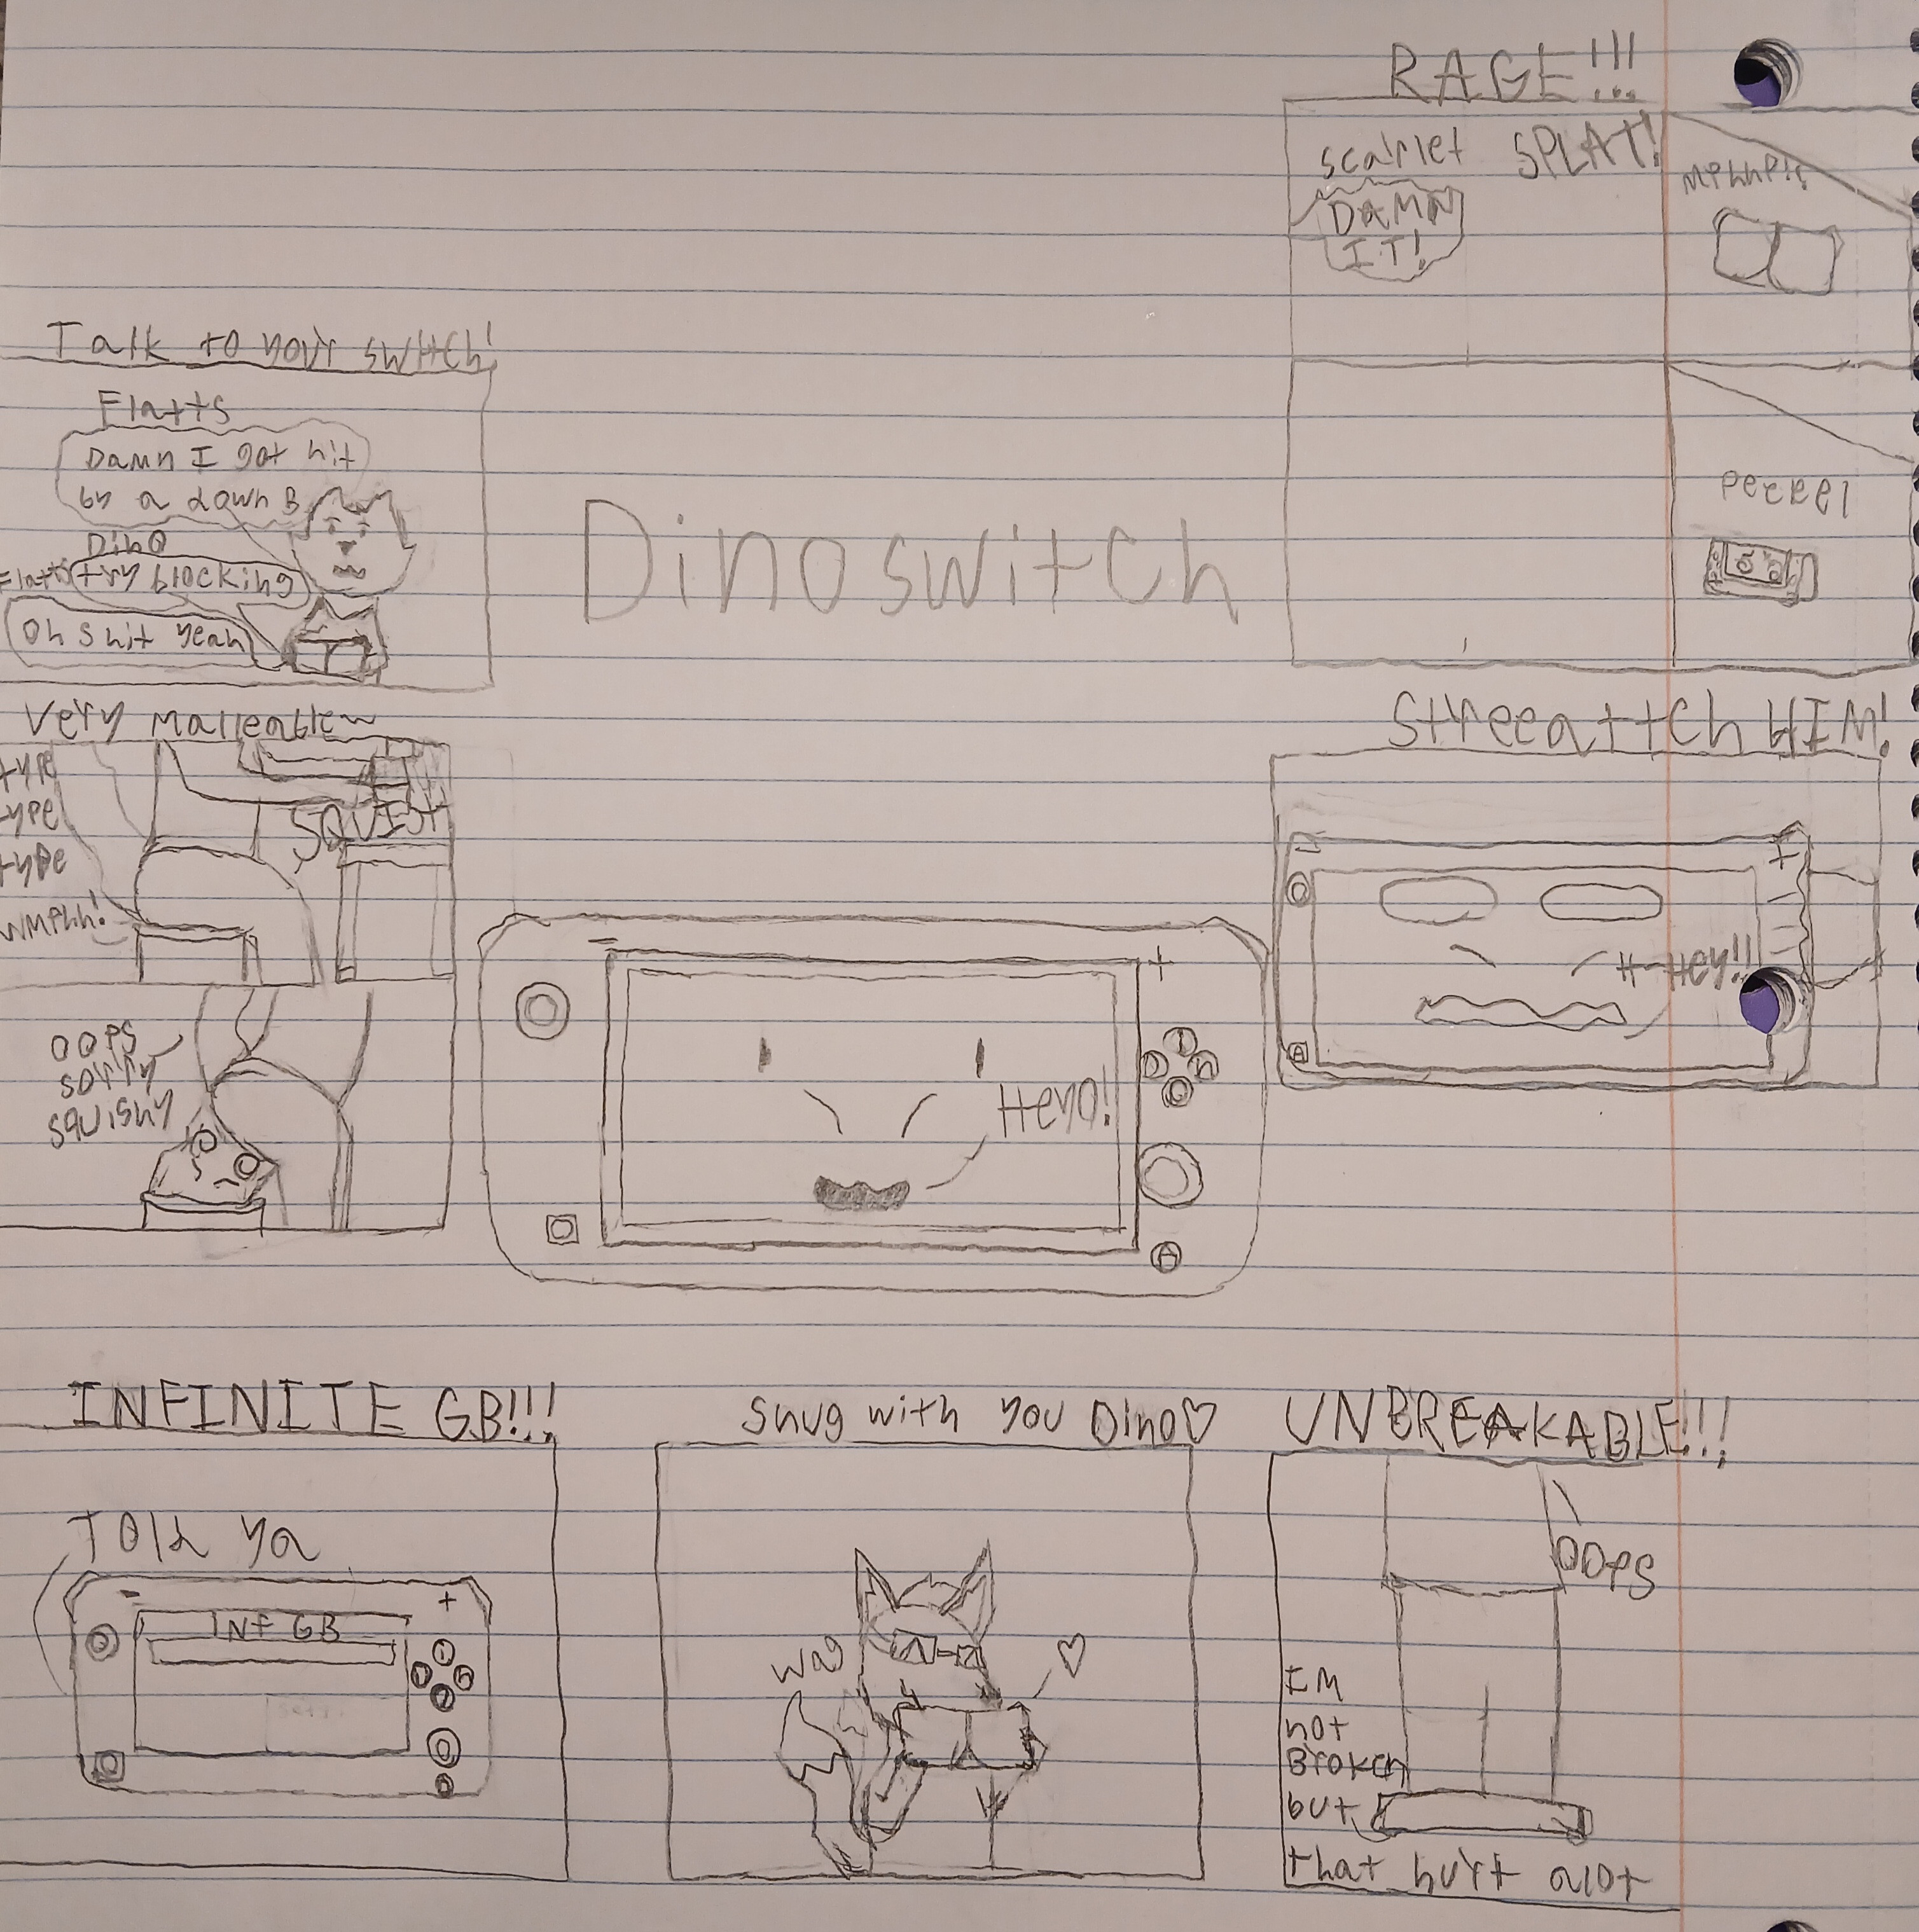 RAGE!!!
scarlet SPLAT!
DAMN
IT!
MPHHP!!
PEEEEl
Talk to your switch!
Flatts
Damn I got hit
by a down B
Dino
Flatts
try blocking
Oh shit yeah
Dinoswitch
Very Malleable~
type
type
type
SQUISH
WMPHH!
OOPS
sorry
squishy
Streeattch HIM!
-
+
H-Hey!!
-
+
Heyo!
INFINITE GB!!!
Told ya
-
+
INF GB
Snug with you Dino♡
wag
♡
UNBREAKABLE!!!
OOPS
IM
not
Broken
but
that hurt alot